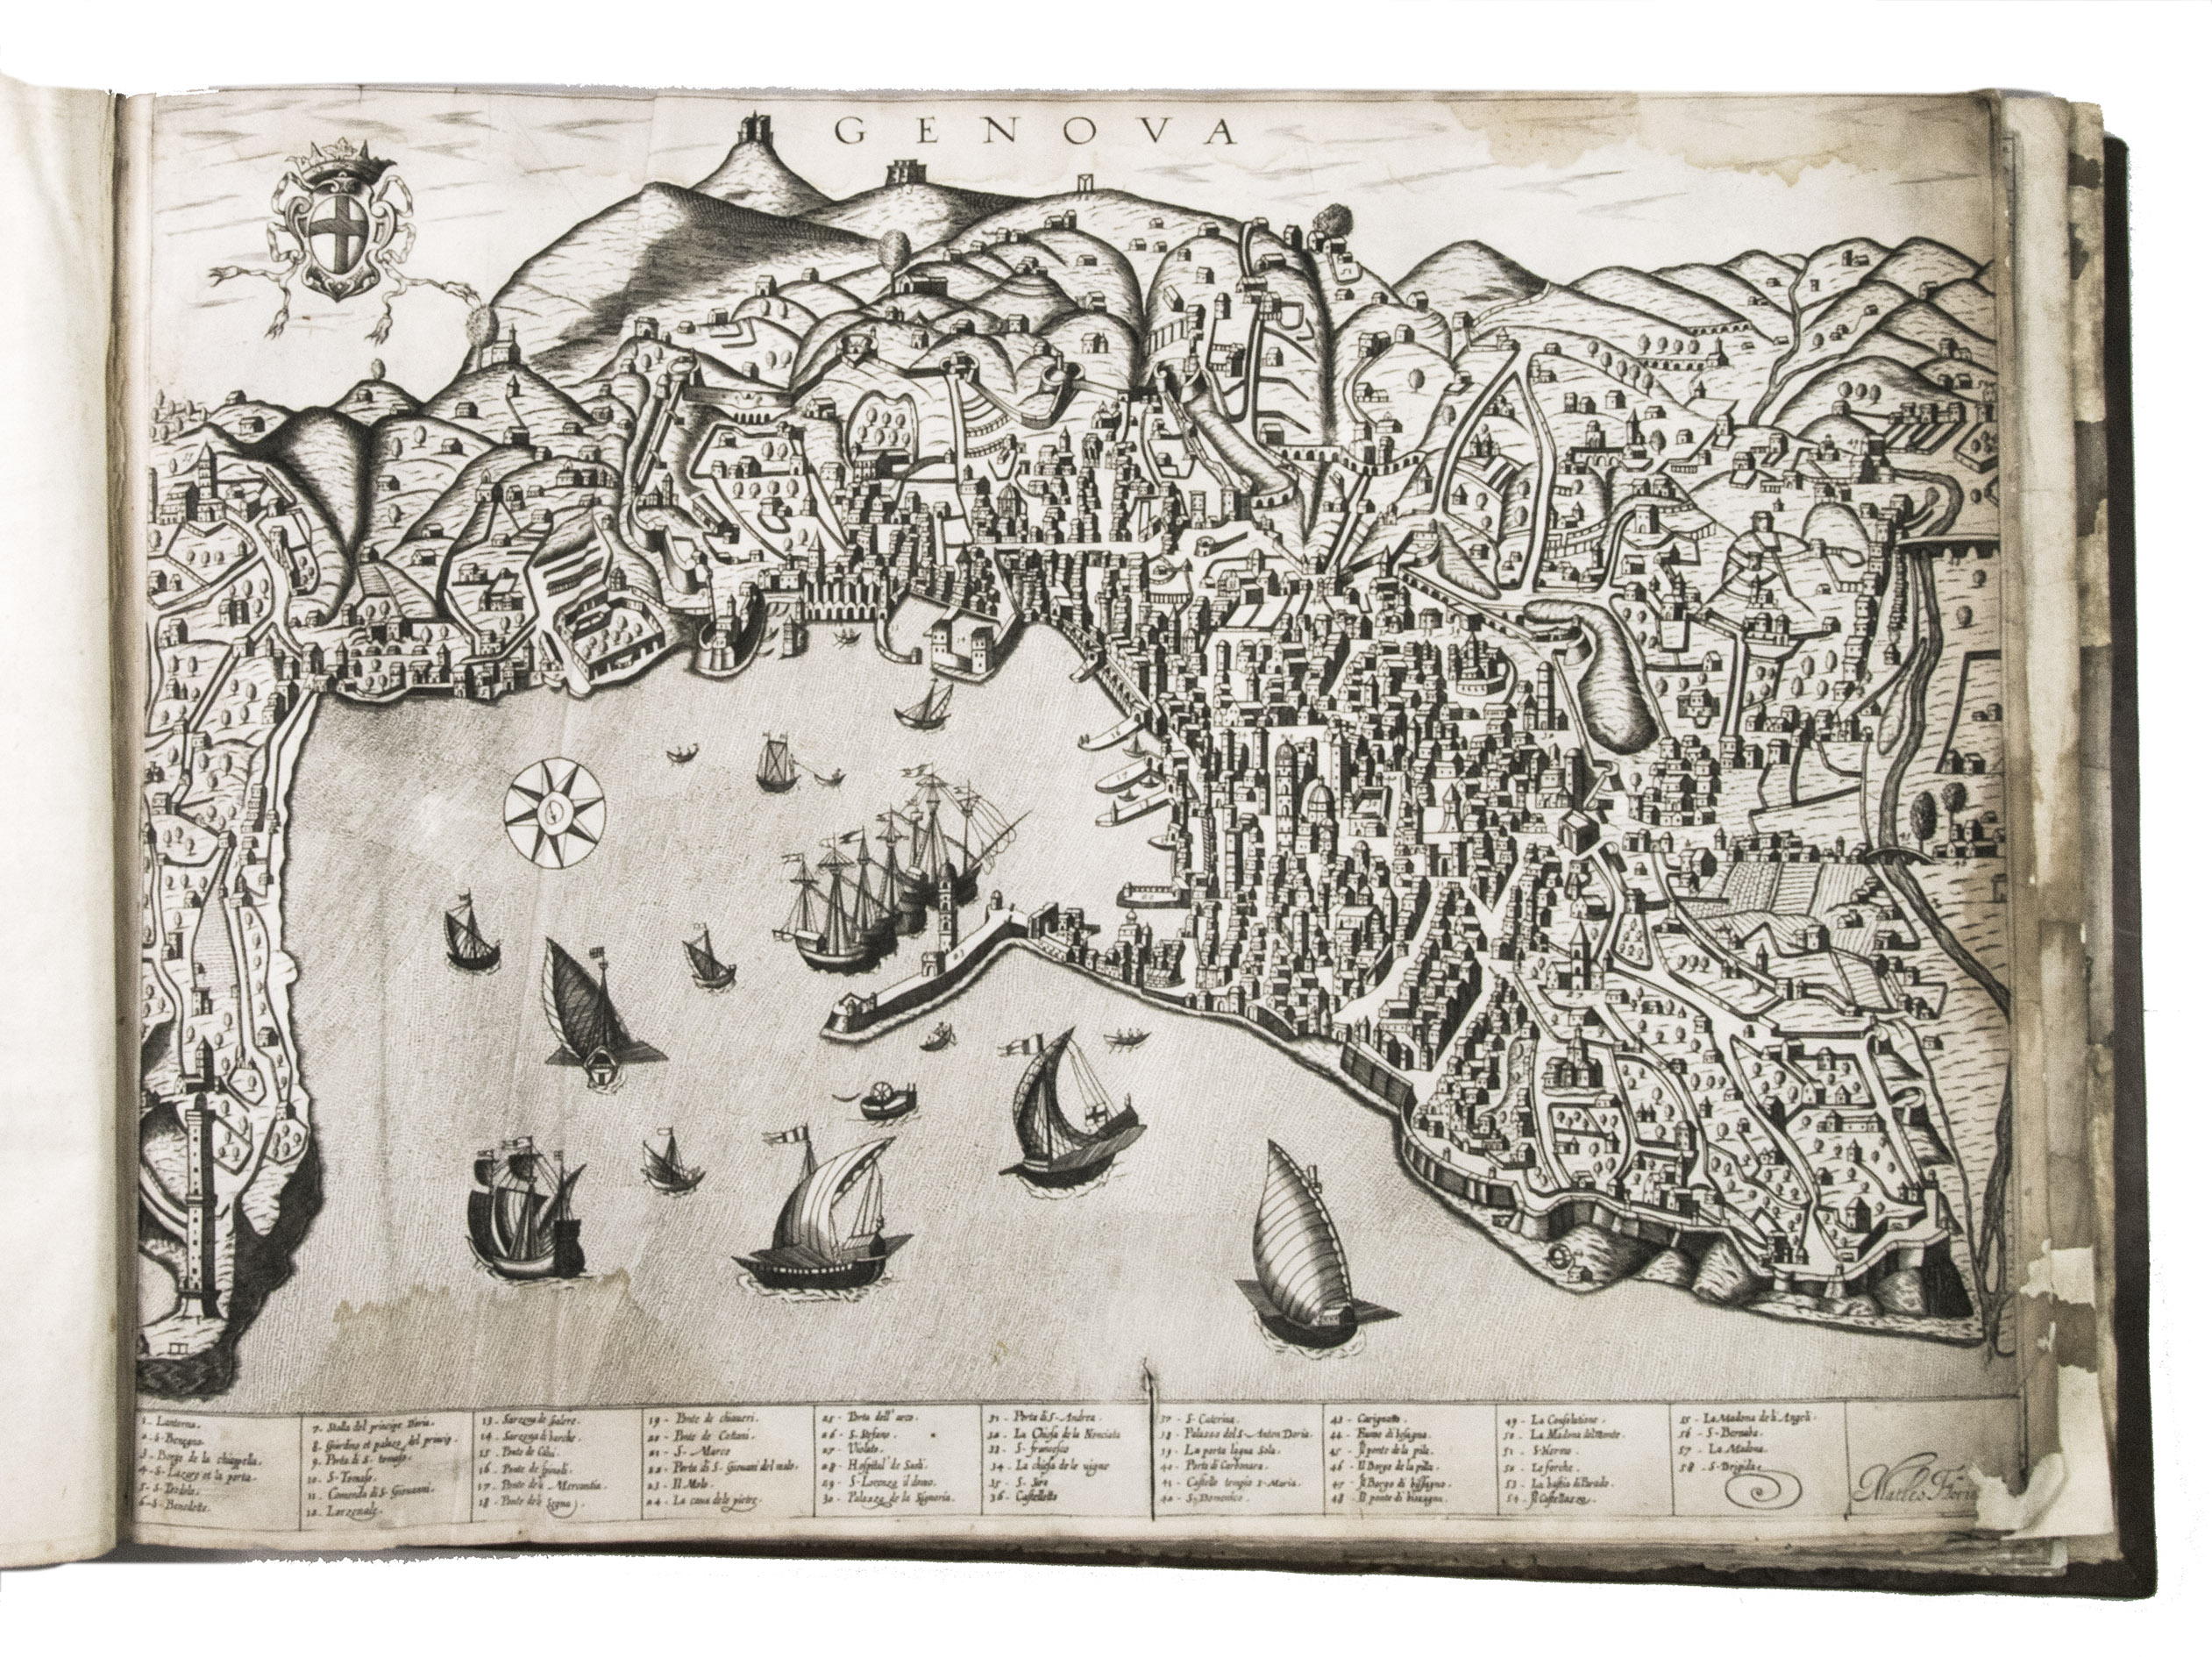 GENOVA
1 - Lanterna.
2 - S. Benigno.
3 - Borgo de la chiappella.
4 - S. Lazaro et la porta.
5 - S. Teodolo.
6 - S. Benedetto.
7. Stalla del principe Doria.
8. Giardino et palazo del princip.
9. Porta di S. tomaso.
10. S. Tomaso.
11. Comenda di S. Giovanni.
12. Larzenale.
13 - Sarzena de Galere.
14 - Sarzena di barche.
15. Ponte de Calui.
16 - Ponte de spinoli.
17 - Ponte de la Mercantia.
18 - Ponte de le Legna.
19 - Ponte de chiaueri.
20 - Ponte de Cattani.
21 - S. Marco
22 - Porta di S. Giouani del molo.
23 - Il Molo.
24 - La caua dele pietre.
25 - Porta dell' arco.
26 - S. Stefano.
27 - Violato.
28 - Hospital de
29 - S. Lorenzo il domo.
30 - Palazzo de la Signoria.
31 - Porta di S. Andrea.
32 - La Chiesa de la Nonciata
33 - S. francesco
34 - La chiesa de le vigne
35 - S. Siro
36 - Castelletto
37 - S. Caterina.
38 - Palazzo del S. Anton Doria.
39 - La porta laqua Sola.
40 - Porta di Carbonara.
41 - Castello tempio S. Maria.
42 - S. Domenico.
43 - Carignano.
44 - Fiume di bisagna.
45 - Il ponte de la pila.
46 - Il Borgo de la pilla.
47 - Il Borgo di bissagno.
48 - Il ponte di bisagna.
49 - La Consolatione.
50 - La Madona del Monte.
51 - S. Hermo.
52 - Le forche.
53 - La bastia di
54 - Il Castellazzo.
55 - La Madona de li Angeli.
56 - S. Bernaba.
57 - La Madona.
58 - S. Brigida